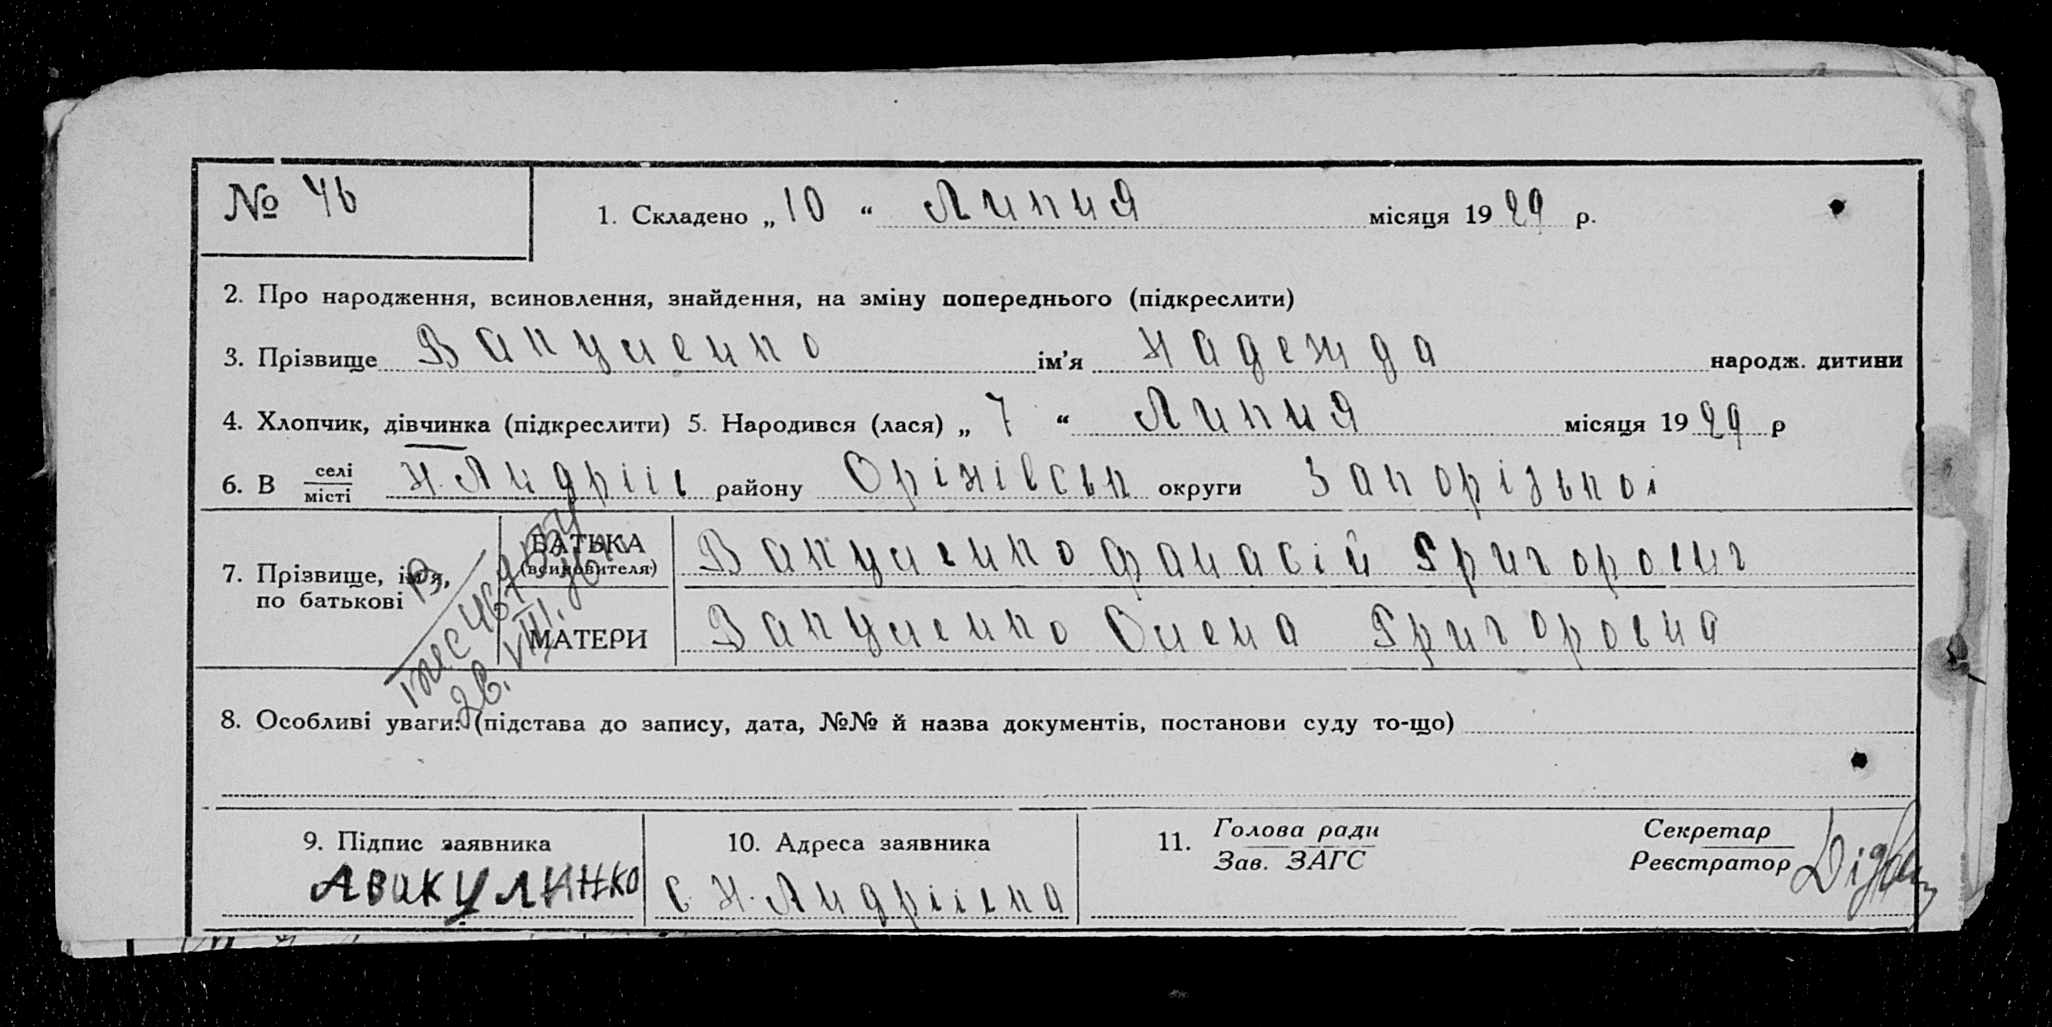 № 46
1. Складено „ 10 “ Липня місяця 1929 р.
2. Про народження, всиновлення, знайдення, на зміну попереднього (підкреслити)
3. Прізвище Вакуленко ім'я Надежда народж. дитини
4. Хлопчик, дівчинка (підкреслити) 5. Народився (лася) „ 7 “ Липня місяця 1929 р
6. В селі / місті Н. Андріїв району Оріхівськ округи Запорізької
7. Прізвище, ім'я, по батькові
БАТЬКА (всиновителя) Вакуленко Фанасій Григорович
МАТЕРИ Вакуленко Олена Григоровна
8. Особливі уваги: (підстава до запису, дата, №№ й назва документів, постанови суду то-що)
9. Підпис заявника
АВакулинко
10. Адреса заявника
с. Н. Андріївка
11. Голова ради
Зав. ЗАГС
Секретар
Реєстратор